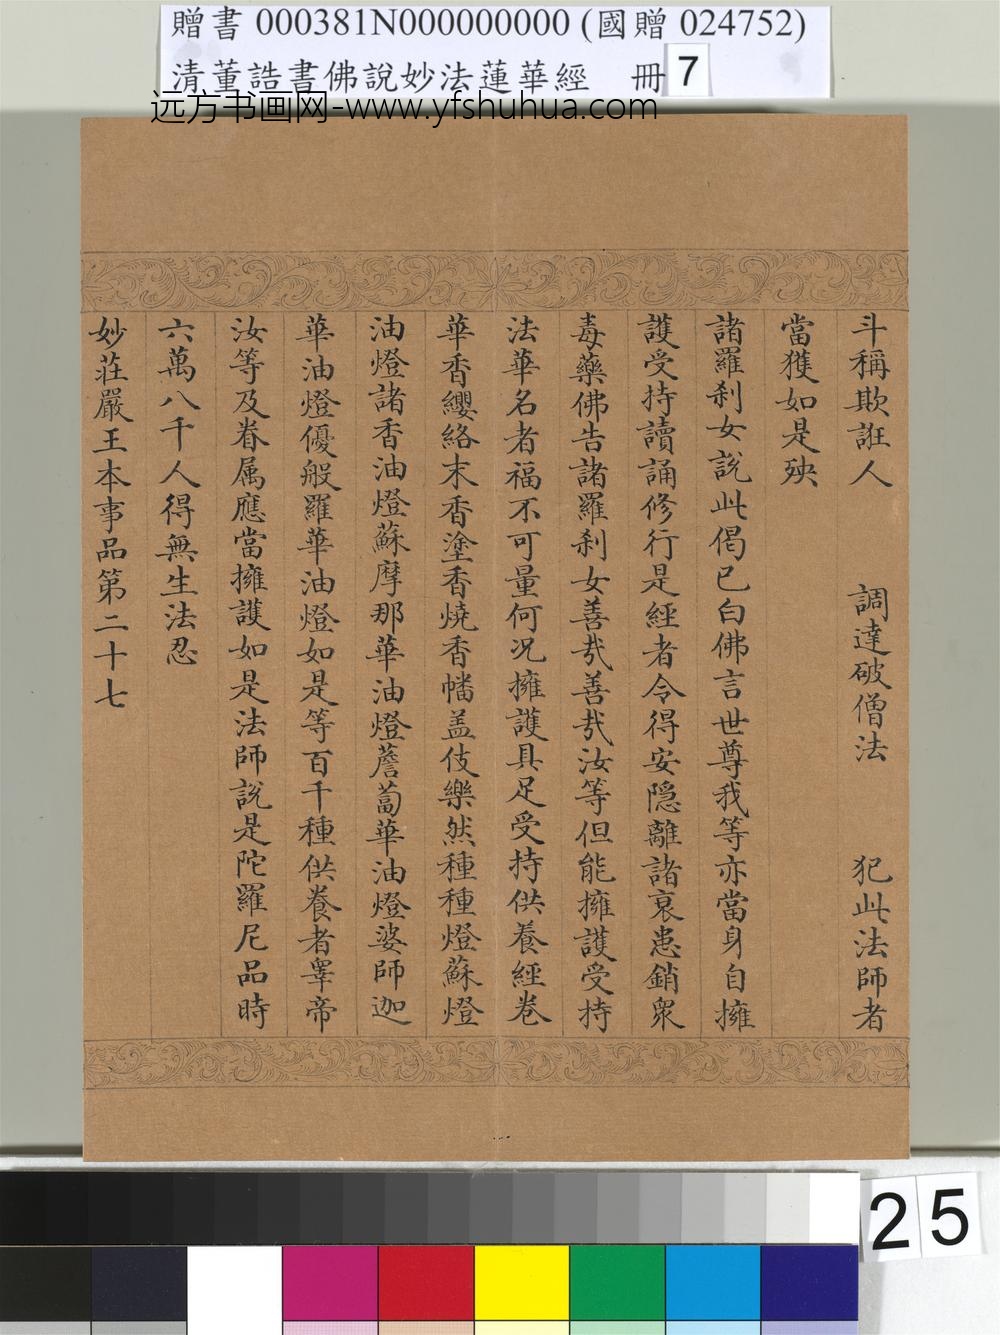 贈書 000381N000000000 (國贈 024752)
清董誥書佛說妙法蓮華經 冊 7
远方书画网-www.yfshuhua.com
斗稱欺誑人 調達破僧法 犯此法師者
當獲如是殃
諸羅刹女說此偈已白佛言世尊我等亦當身自擁
護受持讀誦修行是經者令得安隱離諸衰患銷眾
毒藥佛告諸羅刹女善哉善哉汝等但能擁護受持
法華名者福不可量何況擁護具足受持供養經卷
華香纓絡末香塗香燒香幡盖伎樂然種種燈蘇燈
油燈諸香油燈蘇摩那華油燈薝蔔華油燈婆師迦
華油燈優般羅華油燈如是等百千種供養者睾帝
汝等及眷属應當擁護如是法師說是陀羅尼品時
六萬八千人得無生法忍
妙莊嚴王本事品第二十七
25